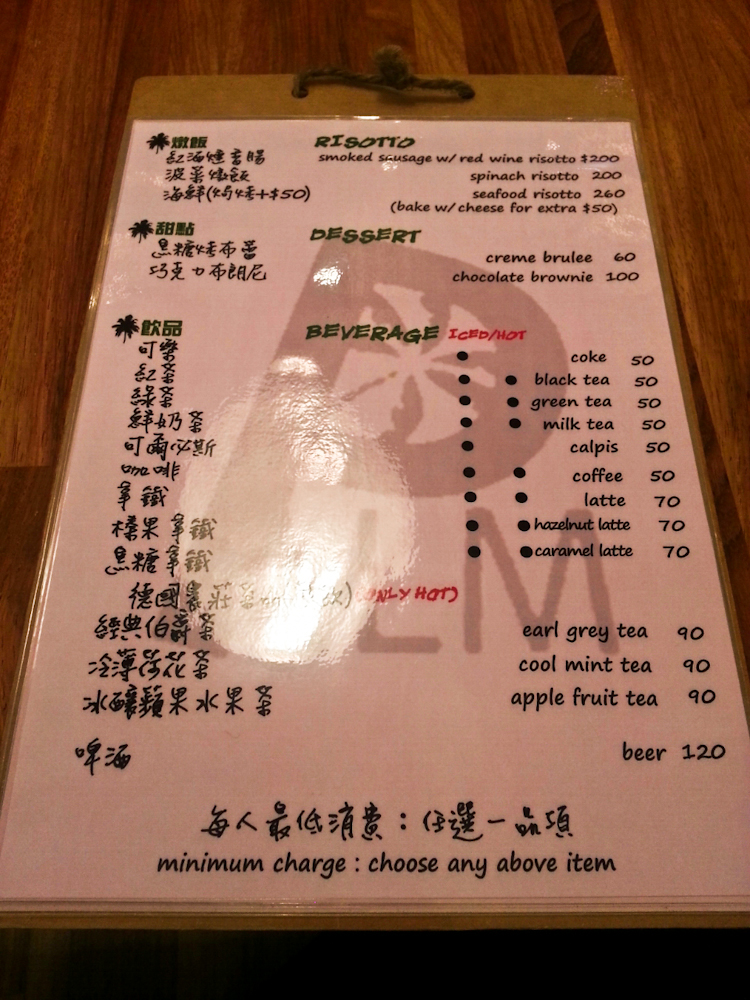 燉飯 RISOTTO
紅酒燻香腸 smoked sausage w/ red wine risotto $200
菠菜燉飯 spinach risotto 200
海鮮(焗烤+$50) seafood risotto 260
(bake w/ cheese for extra $50)
甜點 DESSERT
黑糖烤布蕾 creme brulee 60
巧克力布朗尼 chocolate brownie 100
飲品 BEVERAGE ICED/HOT
可樂 ● coke 50
紅茶 ● ● black tea 50
綠茶 ● ● green tea 50
鮮奶茶 ● ● milk tea 50
可爾必斯 ● calpis 50
咖啡 ● ● coffee 50
拿鐵 ● ● latte 70
榛果拿鐵 ● ● hazelnut latte 70
黑糖拿鐵 ● ● caramel latte 70
德國 (ONLY HOT)
茶 earl grey tea 90
茶 cool mint tea 90
冰釀蘋果水果茶 apple fruit tea 90
啤酒 beer 120
每人最低消費：任選一品項
minimum charge : choose any above item
PALM